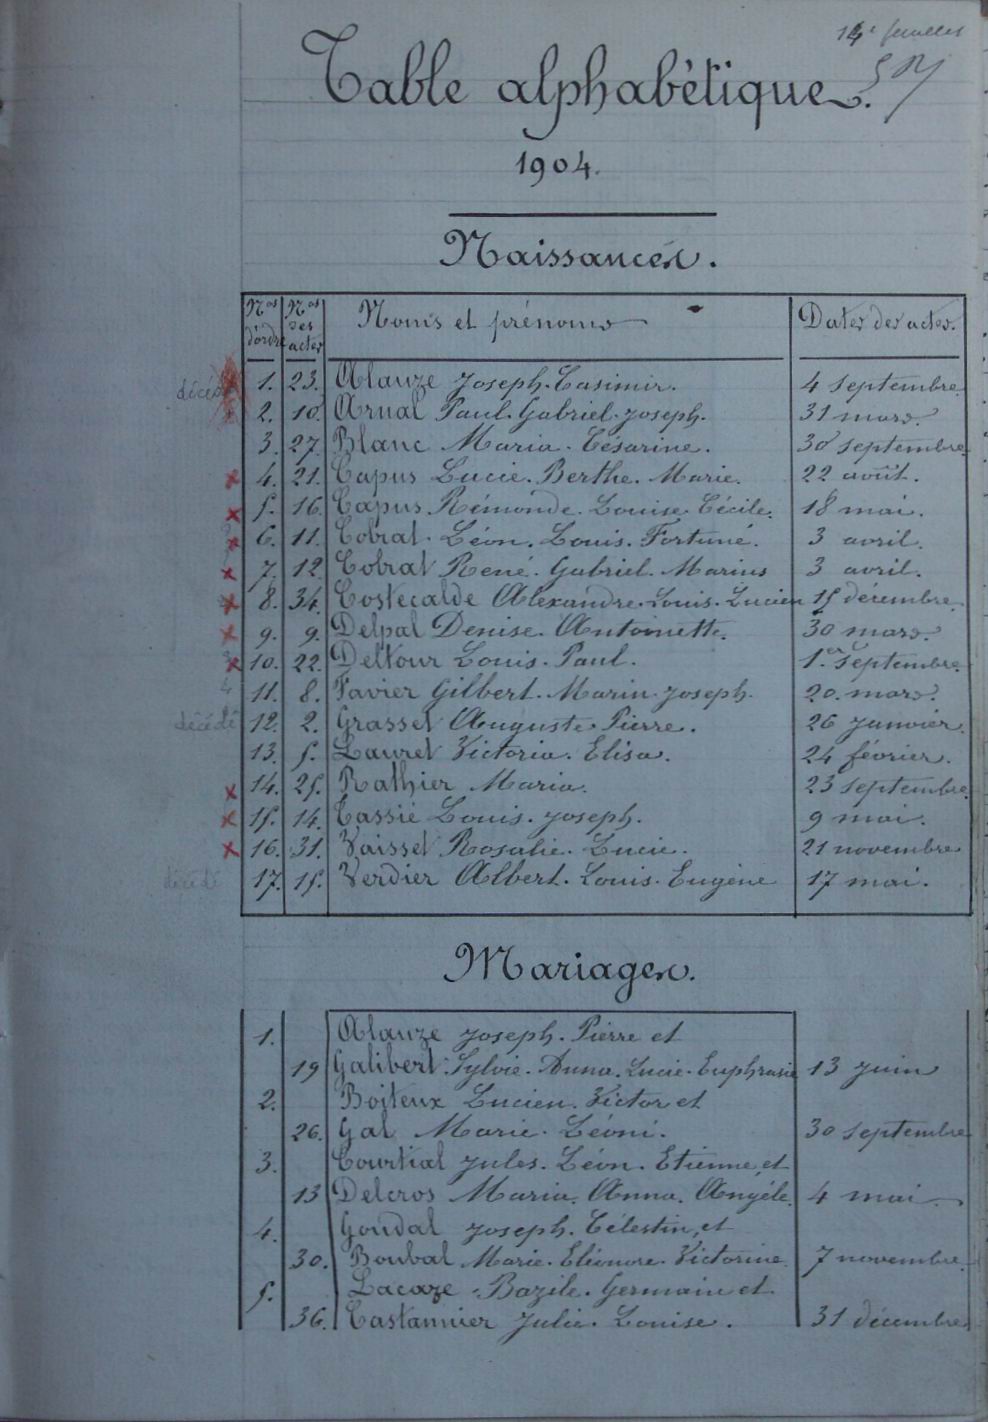 14e feuillet
Table alphabétique.
1904.
Naissances.
Nos d'ordre Nos des actes Noms et prénoms Dates des actes.
décédé 1. 23. Alauze Joseph. Casimir. 4 septembre.
2. 10. Arnal Paul. Gabriel. Joseph. 31 mars.
3. 27. Blanc Maria. Césarine. 30 septembre.
4. 21. Capus Lucie. Berthe. Marie. 22 août.
5. 16. Capus Rémonde. Louise. Cécile. 18 mai.
6. 11. Cobrat. Léon. Louis. Fortuné. 3 avril.
7. 12. Cobrat René. Gabriel. Marius 3 avril.
8. 34. Costecalde Alexandre. Louis. Lucien 15 décembre.
9. 9. Delpal Denise. Antoinette. 30 mars.
10. 22. Deltour Louis. Paul. 1.er septembre.
11. 8. Favier Gilbert. Marin. Joseph. 20. mars.
décédé 12. 2. Grasset Auguste. Pierre. 26 janvier.
13. 5. Lauret Victoria. Elisa. 24 février.
14. 25. Rathier Maria. 23 septembre.
15. 14. Tassié Louis. Joseph. 9 mai.
16. 31. Vaisset Rosalie. Lucie. 21 novembre
décédé 17. 15. Verdier Albert. Louis. Eugène 17 mai.
Mariages.
1. Alauze Joseph. Pierre et
19 Galibert Sylvie. Anna. Lucie. Euphrasie 13 juin
2. Boiteux Lucien. Victor et
26. Gal Marie. Léoni. 30 septembre
3. Courtial Jules. Léon. Etienne, et
13 Delcros Maria. Anna. Angèle. 4 mai
4. Goudal Joseph. Célestin, et
30. Boubal Marie. Eléonore. Victorine 7 novembre.
5. Lacaze Bazile. Germain et
36. Castannier Julie. Louise. 31 décembre